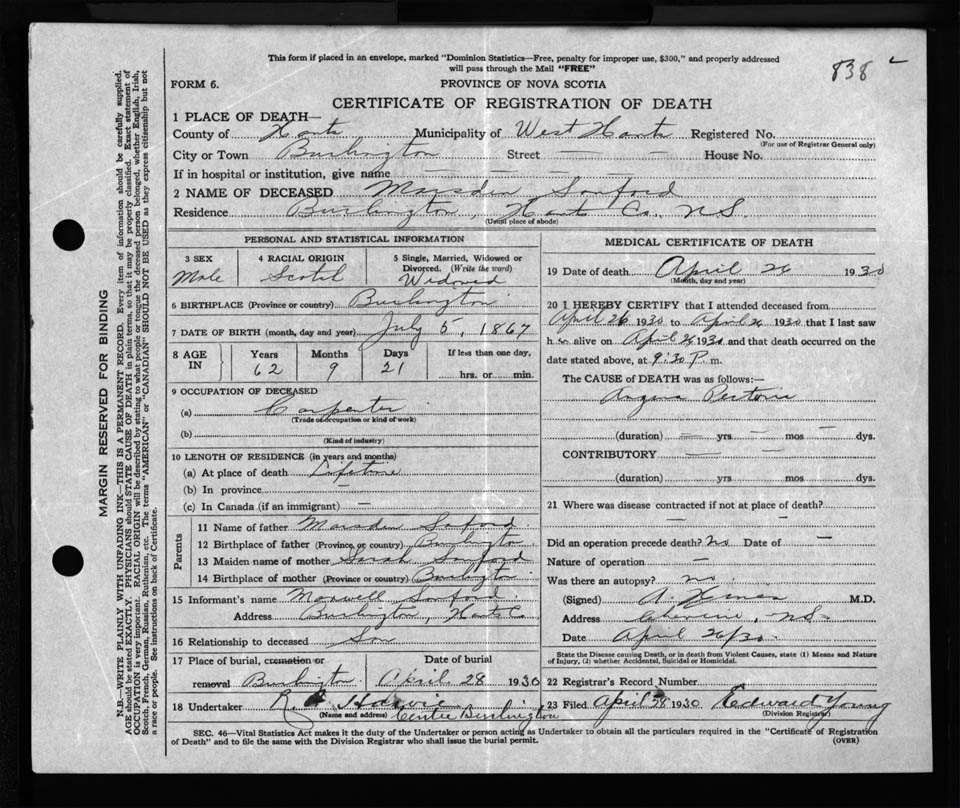 This form if placed in an envelope, marked "Dominion Statistics—Free, penalty for improper use, $300," and properly addressed
will pass through the Mail "FREE"
838
FORM 6.
PROVINCE OF NOVA SCOTIA
CERTIFICATE OF REGISTRATION OF DEATH
1 PLACE OF DEATH—
County of Hants Municipality of West Hants Registered No.
(For use of Registrar General only)
City or Town Burlington Street — — House No. —
If in hospital or institution, give name — — — —
2 NAME OF DECEASED Marsden Sanford
Residence Burlington, Hants Co. N.S.
(Usual place of abode)
PERSONAL AND STATISTICAL INFORMATION
3 SEX
Male
4 RACIAL ORIGIN
Scotch
5 Single, Married, Widowed or
Divorced. (Write the word)
Widowed
6 BIRTHPLACE (Province or country) Burlington
7 DATE OF BIRTH (month, day and year) July 5, 1867
8 AGE IN
Years Months Days If less than one day,
62 9 21 hrs. or min.
9 OCCUPATION OF DECEASED
(a) Carpenter
(Trade occupation or kind of work)
(b)
(Kind of industry)
10 LENGTH OF RESIDENCE (in years and months)
(a) At place of death Lifetime
(b) In province —
(c) In Canada (if an immigrant) —
Parents
11 Name of father Marsden Sanford
12 Birthplace of father (Province or country) Burlington
13 Maiden name of mother Sarah Sanford
14 Birthplace of mother (Province or country) Burlington
15 Informant's name Maxwell Sanford
Address Burlington, Hants C.
16 Relationship to deceased Son
17 Place of burial, cremation or
removal Burlington
Date of burial
April 28 1930
18 Undertaker Harvie
(Name and address) Centre Burlington
MEDICAL CERTIFICATE OF DEATH
19 Date of death April 26 1930
(Month, day and year)
20 I HEREBY CERTIFY that I attended deceased from
April 26 1930 to April 26 1930 that I last saw
h alive on April 26 1930 and that death occurred on the
date stated above, at 9:30 P. m.
The CAUSE of DEATH was as follows:—
Angina Pectoris
(duration) — yrs — mos — dys.
CONTRIBUTORY — —
(duration) — yrs — mos — dys.
21 Where was disease contracted if not at place of death?
— —
Did an operation precede death? No Date of —
Nature of operation —
Was there an autopsy? no.
(Signed) A. M.D.
Address N.S.
Date April 26/30.
State the Disease causing Death, or in death from Violent Causes, state (1) Means and Nature
of Injury, (2) whether Accidental, Suicidal or Homicidal.
22 Registrar's Record Number
23 Filed April 28 1930 Edward Young
(Division Registrar)
SEC. 46—Vital Statistics Act makes it the duty of the Undertaker or person acting as Undertaker to obtain all the particulars required in the "Certificate of Registration
of Death" and to file the same with the Division Registrar who shall issue the burial permit.
(OVER)
MARGIN RESERVED FOR BINDING
N.B.—WRITE PLAINLY WITH UNFADING INK—THIS IS A PERMANENT RECORD. Every item of information should be carefully supplied.
AGE should be stated EXACTLY. PHYSICIANS should STATE CAUSE OF DEATH in plain terms, so that it may be properly classified. Exact statement of
OCCUPATION is very important. RACIAL ORIGIN will be described by stating to what people or tongue the deceased person belonged, whether English, Irish,
Scotch, French, German, Russian, Ruthenian, etc. The terms "AMERICAN" or "CANADIAN" SHOULD NOT BE USED as they express citizenship but not
a race or people. See instructions on back of Certificate.